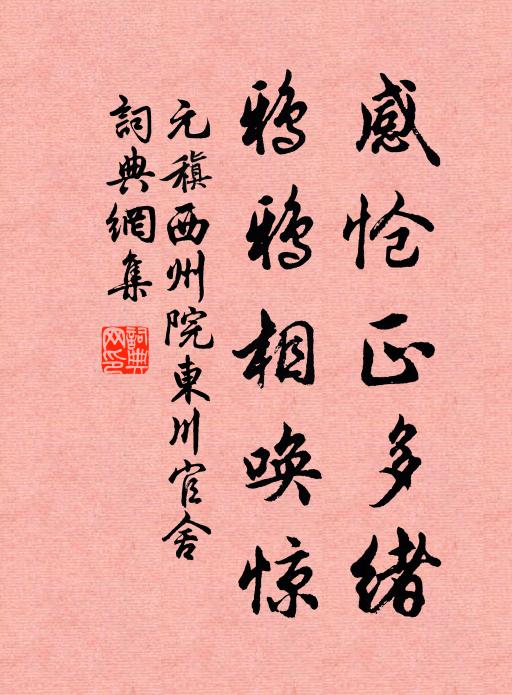 感怆正多绪
鸦鸦相唤惊
元稹西州院東川官舍
詞典網集
詞典網印